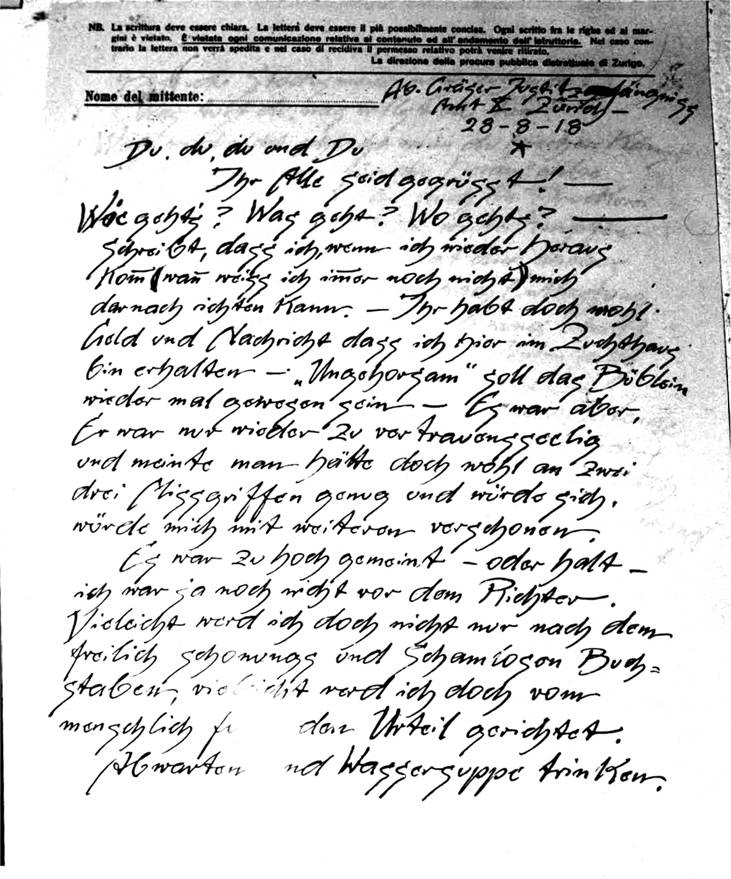 NB. La scrittura deve essere chiara. La lettera deve essere il più possibilmente concisa. Ogni scritto fra le righe ed ai mar-
gini è vietato. È vietata ogni comunicazione relativa al contenuto ed all'andamento dell'istruttoria. Nel caso con-
trario la lettera non verrà spedita e nel caso di recidiva il permesso relativo potrà venire ritirato.
La direzione della procura pubblica distrettuale di Zurigo.
Nome del mittente:
Ab. Gräser Justitz gefängniss
Amt X Zürich —
28-8-18
Du, du, du und Du
Ihr Alle seid gegrüsst! —
Wie gehts? Was geht? Wo gehts? —
schreibt, dass ich, wenn ich wieder heraus
Kom̄ (wan̄ weiss ich im̄er noch nicht) mich
darnach richten kann. — Ihr habt doch wohl
Geld und Nachricht dass ich hier im Zuchthaus
bin erhalten — „Ungehorsam" soll das Büblein
wieder mal gewesen sein — Es war aber,
Er war nur wieder zu vertrauensseelig
und meinte man hätte doch wohl an zwei
drei Missgriffen genug und würde sich,
würde mich mit weiteren verschonen.
Es war zu hoch gemeint — oder halt —
ich war ja noch nicht vor dem Richter.
Vieleicht werd ich doch nicht nur nach dem
freilich schonungs und schamlosen Buch=
staben, vielleicht werd ich doch vom
menschlich den Urteil gerichtet.
Abwarten nd Wassersuppe trinken.